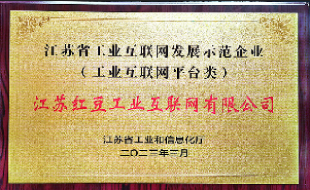 江苏省工业互联网发展示范企业
（工业互联网平台类）
江苏红豆工业互联网有限公司
江苏省工业和信息化厅
二〇二三年三月